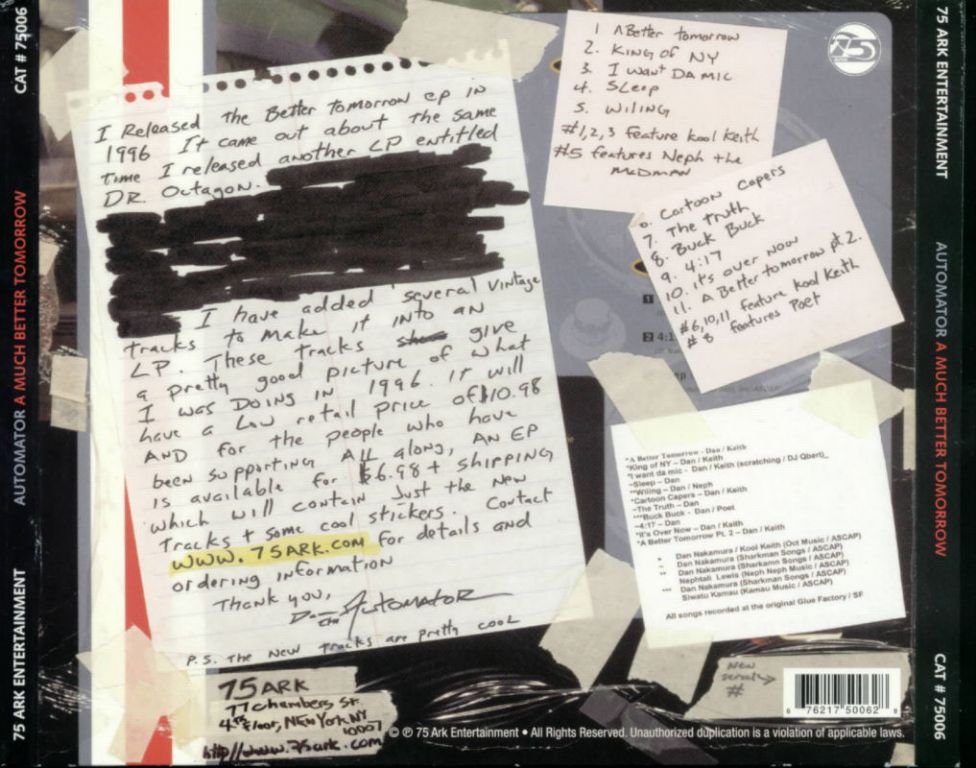 75 ARK ENTERTAINMENT AUTOMATOR A MUCH BETTER TOMORROW CAT # 75006
I Released the Better Tomorrow ep in
1996 It came out about the same
time I released another LP entitled
DR. Octagon.
I have added several vintage
tracks to make it into an
LP. These tracks give
a pretty good picture of what
I was Doing in 1996. It will
have a Low retail price of $10.98
AND for the people who have
been supporting All along, AN EP
is available for $6.98 + shipping
which will contain Just the New
Tracks + some cool stickers. Contact
www.75ARK.com for details and
ordering information
Thank you,
Dan the Automator
P.S. The New Tracks are pretty cool
75 ARK
77 chambers St.
4th Floor, New York NY
10007
http://www.75ark.com
1 A Better tomorrow
2. King of NY
3. I want Da mic
4. Sleep
5. Wiling
#1,2,3 feature Kool Keith
#5 features Neph the
Madman
6. Cartoon Capers
7. The Truth
8. Buck Buck
9. 4:17
10. it's over now
11. A Better tomorrow pt. 2.
#6,10,11 feature Kool Keith
#8 features Poet
75
1
2 4:1
*A Better Tomorrow - Dan / Keith
*King of NY – Dan / Keith
*I want da mic - Dan / Keith (scratching / DJ Qbert)
~Sleep – Dan
**Wiling – Dan / Neph
*Cartoon Capers – Dan / Keith
~The Truth – Dan
***Buck Buck - Dan / Poet
~4:17 – Dan
*It's Over Now – Dan / Keith
*A Better Tomorrow Pt. 2 – Dan / Keith
* Dan Nakamura / Kool Keith (Oct Music / ASCAP)
~ Dan Nakamura (Sharkman Songs / ASCAP)
** Dan Nakamura (Sharkamn Songs / ASCAP)
Nephtali Lewis (Neph Neph Music / ASCAP)
*** Dan Nakamura (Sharkman Songs / ASCAP)
Siwatu Kamau (Kamau Music / ASCAP)
All songs recorded at the original Glue Factory / SF
New
serial
#
6 76217 50062 8
© ℗ 75 Ark Entertainment • All Rights Reserved. Unauthorized duplication is a violation of applicable laws.
75 ARK ENTERTAINMENT AUTOMATOR A MUCH BETTER TOMORROW CAT # 75006